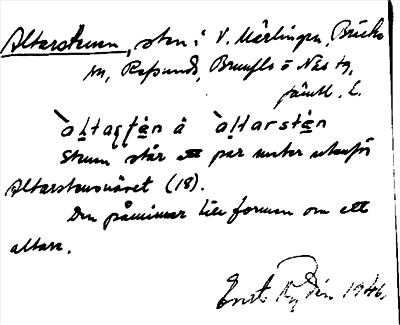 Altarstenen, sten i V. Märlingen, Bäcke
m, Refsunds, Brunflo o Näs tg,
Jämtl. L.
àltaṣtén å àltarstén
Stenen står ett par meter utanför
Altarstensnäset (18).
Den påminner till formen om ett
altare.
Ernst Rydén 1946.